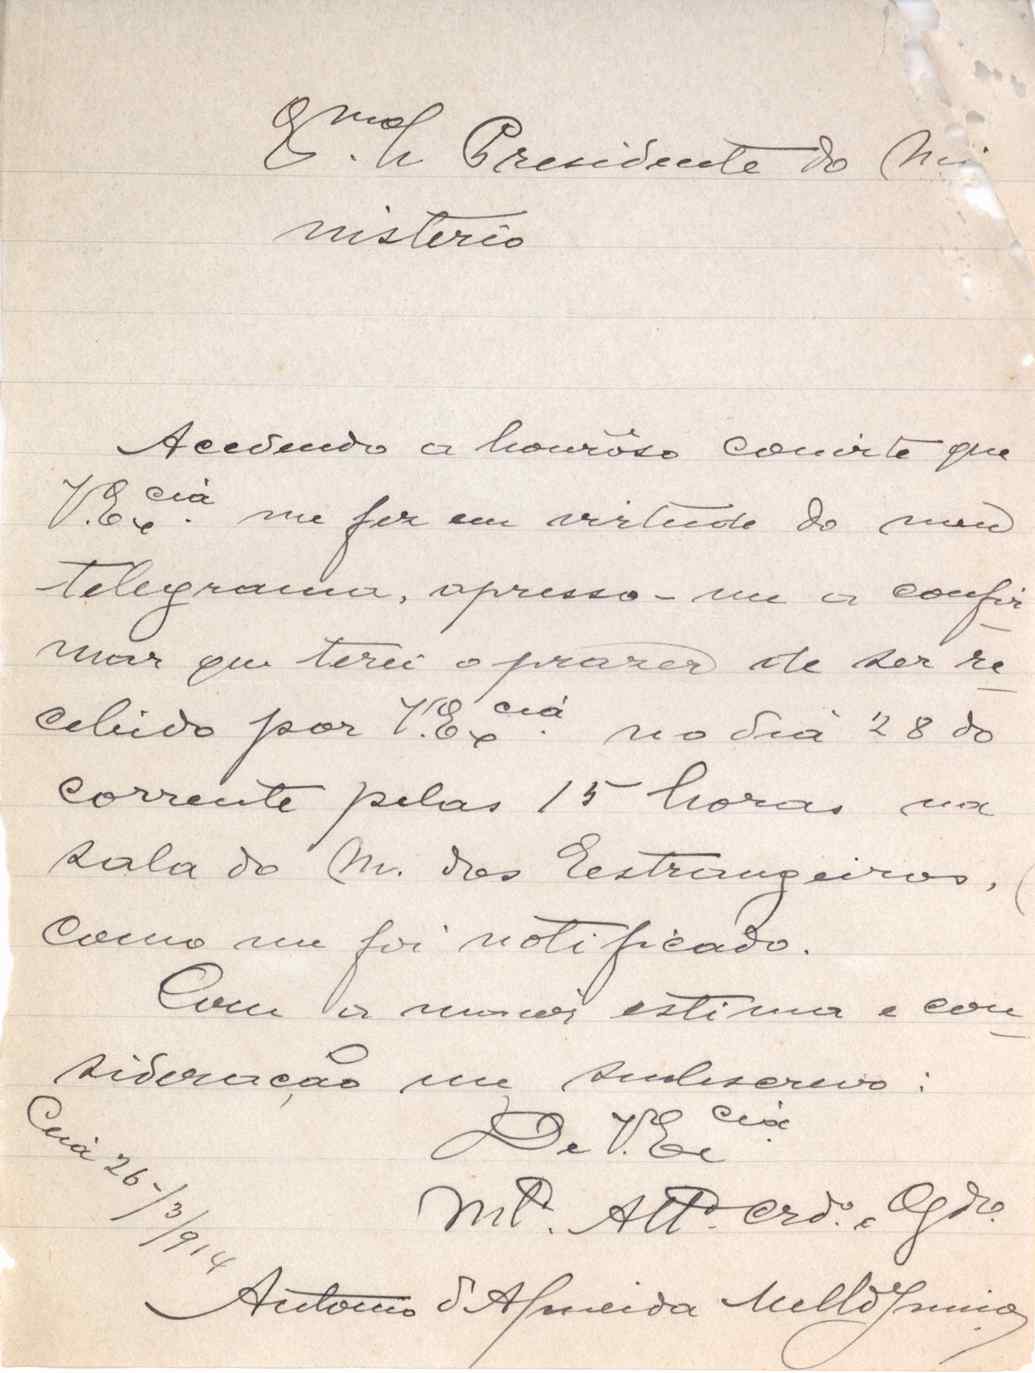 Exmo Sr Presidente do Mi
nisterio
Acedendo a honrôso convite que
V.Excia. me fez em virtude do meu
telegrama, apresso-me a confir
mar que terei o prazer de ser re
cebido por V.Excia. no dia 28 do
corrente pelas 15 horas na
sala do M. dos Eestrangeiros,
como me foi notificado.
Com a maior estima e con
sideração me subscrevo:
De V.Excia.
Mto. Atto. Crdo. e Ogdo.
26-/3/914
Antonio d'Almeida Mello Junior